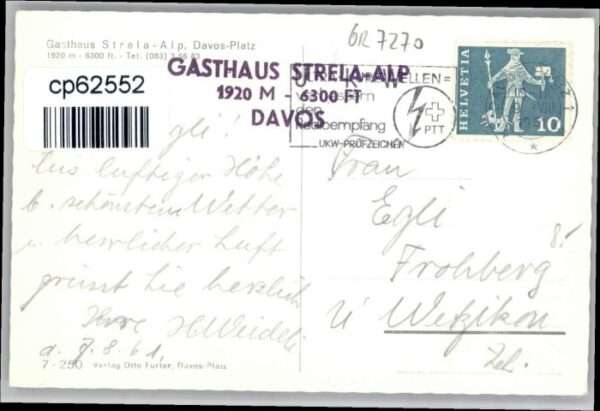 Gasthaus Strela-Alp, Davos-Platz
1920 m - 6300 ft. - Tel. (083)
GR 7270
cp62552
GASTHAUS STRELA-ALP
1920 M - 6300 FT
DAVOS
HELVETIA
10
WELLEN=
den
Radioempfang
UKW-PRÜFZEICHEN
PTT
gli!
Aus luftiger Höhe
b. schönstem Wetter
u. herrlicher Luft
grüsst Sie herzlich
Ihre H. Weidel
a. 7.8.61.
Frau
Egli
8.-
Frohberg
Wetzikon
Zch.
7-250 Verlag Otto Furter, Davos-Platz